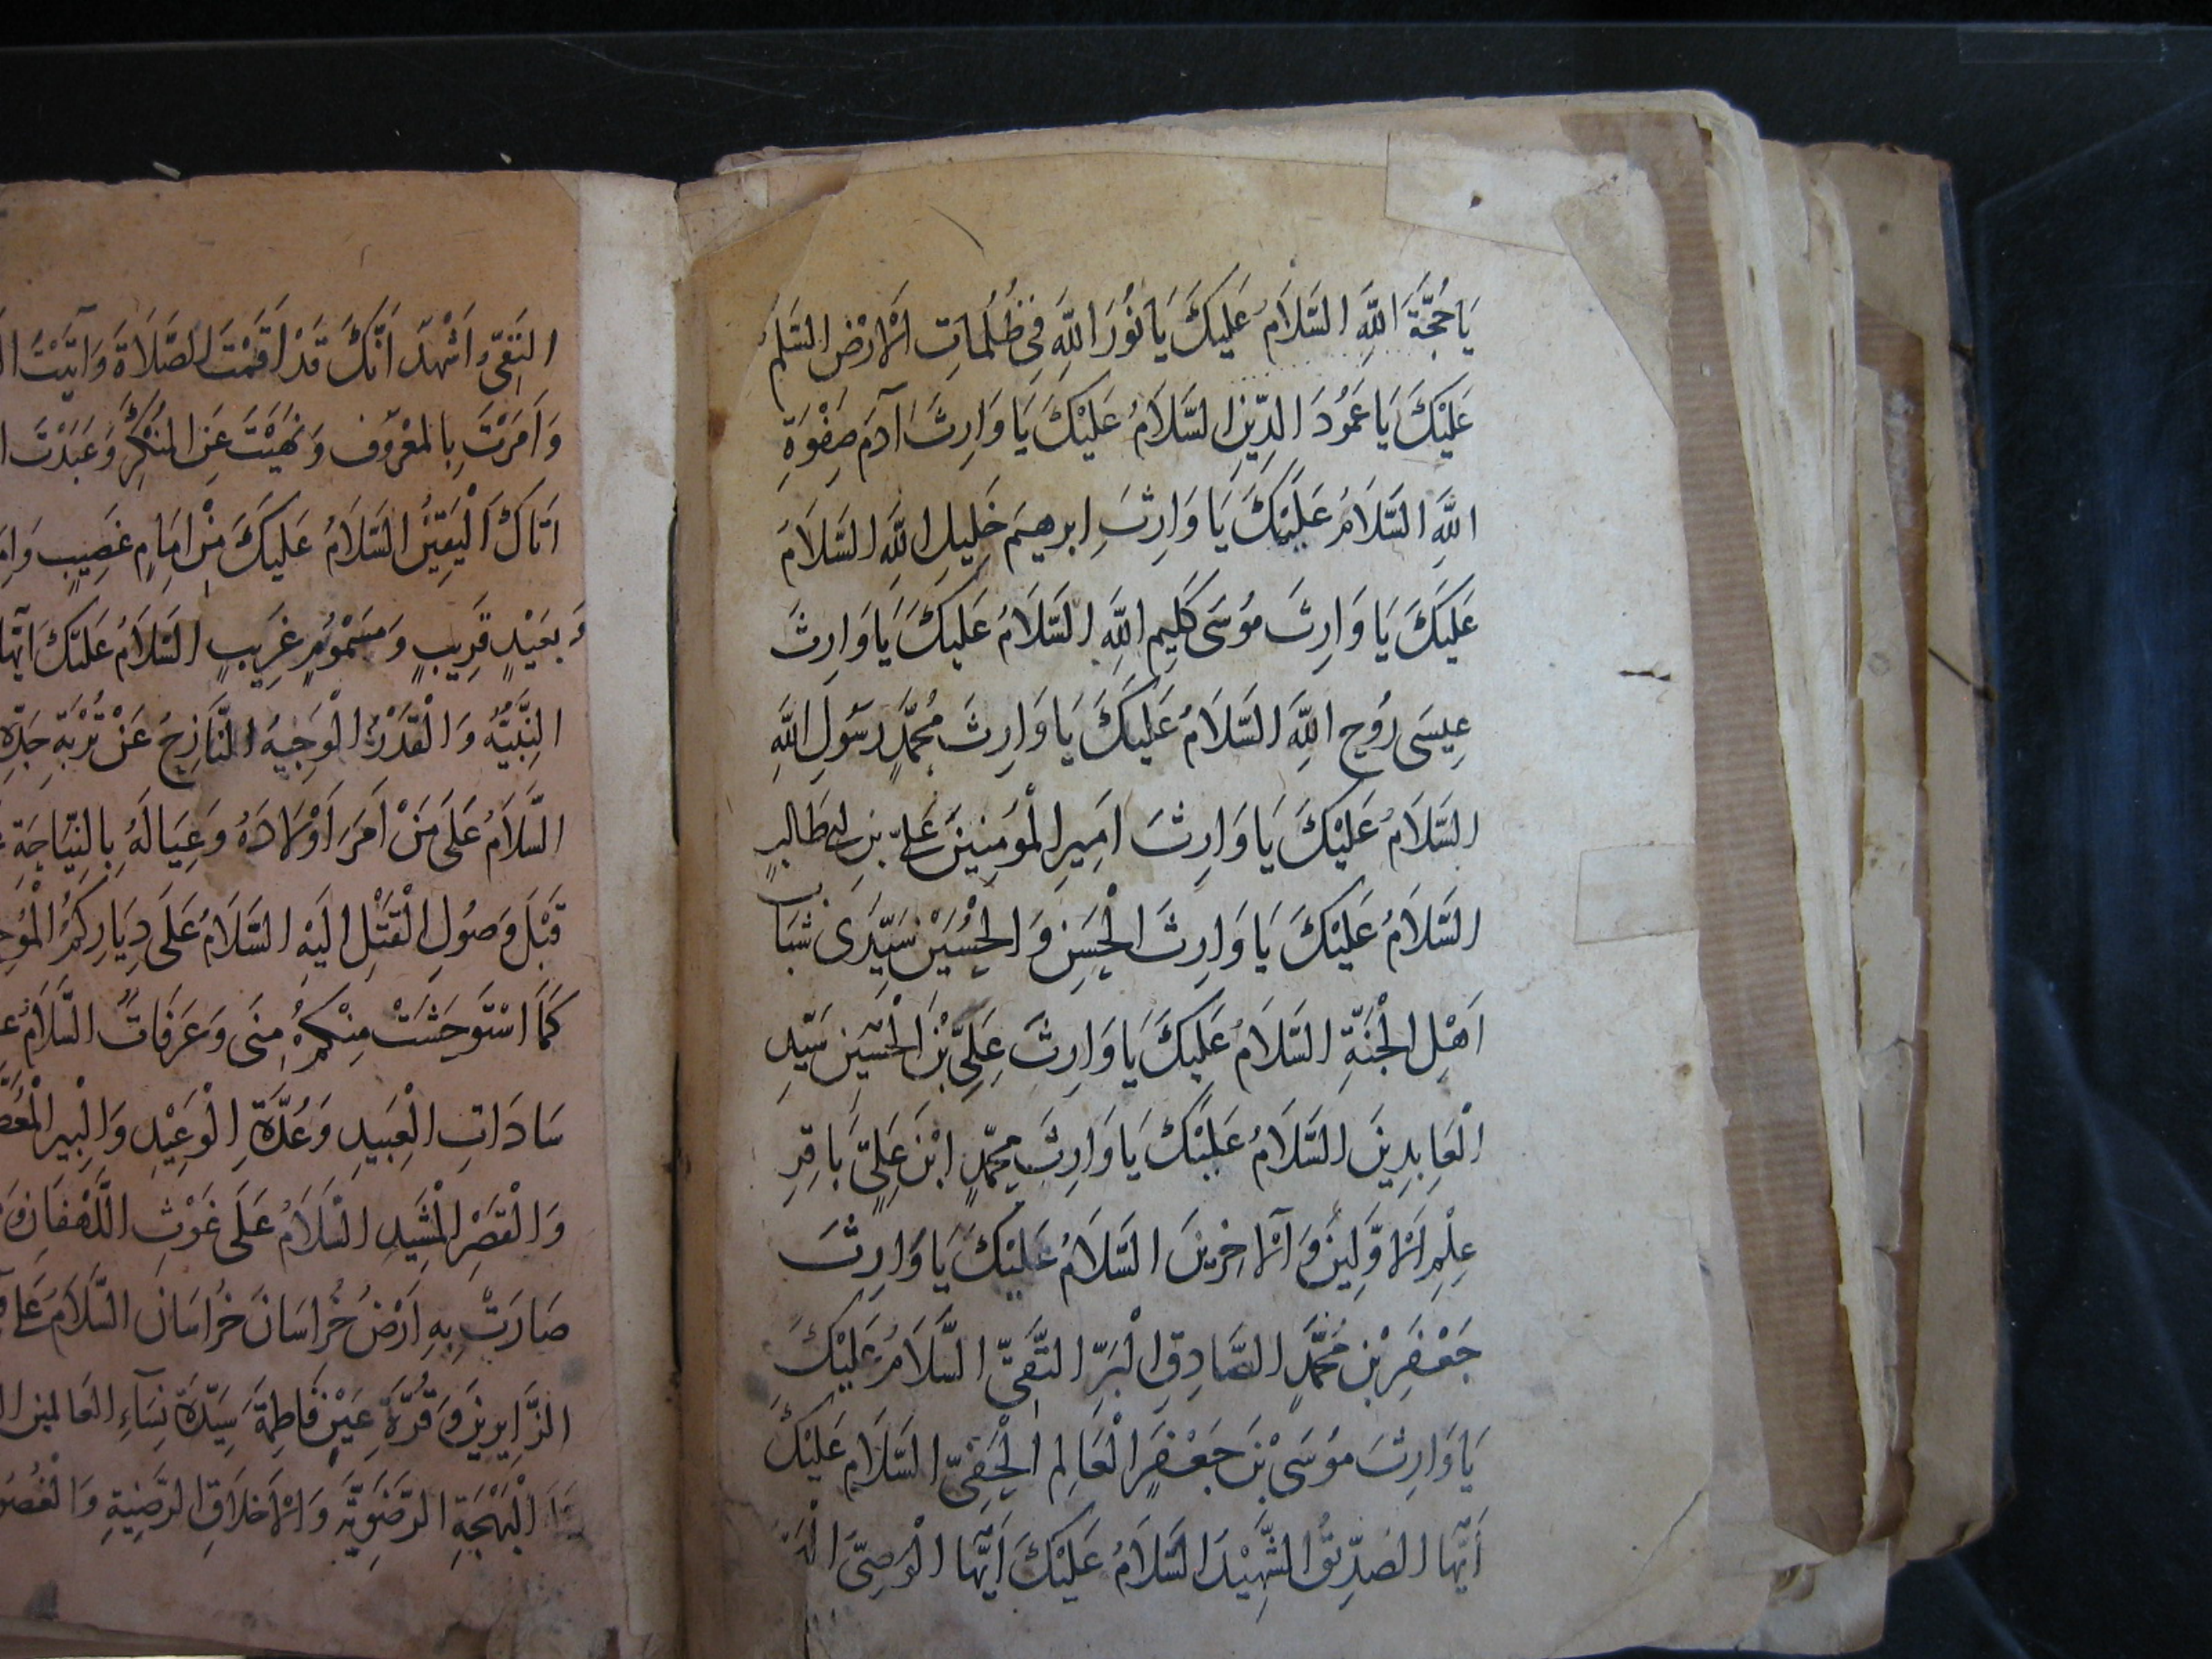 يَا حُجَّةَ اللَّهِ السَّلَامُ عَلَيْكَ يَا نُورَ اللَّهِ فِي ظُلُمَاتِ الْأَرْضِ السَّلَمُ
عَلَيْكَ يَا عَمُودَ الدِّينِ السَّلَامُ عَلَيْكَ يَا وَارِثَ آدَمَ صِفْوَةِ
اللَّهِ السَّلَامُ عَلَيْكَ يَا وَارِثَ ابرهيم خَلِيلِ اللَّهِ السَّلَامُ
عَلَيْكَ يَا وَارِثَ مُوسَى كَلِيمِ اللَّهِ السَّلَامُ عَلَيْكَ يَا وَارِثَ
عِيسَى رُوحِ اللَّهِ السَّلَامُ عَلَيْكَ يَا وَارِثَ مُحَمَّدٍ رَسُولِ اللَّهِ
السَّلَامُ عَلَيْكَ يَا وَارِثَ اَمِيرِ الْمُؤْمِنِينَ عَلِيِّ بْنِ ابي طَالِبٍ
السَّلَامُ عَلَيْكَ يَا وَارِثَ الْحَسَنِ وَ الْحُسَيْنِ سَيِّدَى شَبَابِ
اَهْلِ الْجَنَّةِ السَّلَامُ عَلَيْكَ يَا وَارِثَ عَلِيِّ بْنِ الْحُسَيْنِ سَيِّدِ
الْعَابِدِينَ السَّلَامُ عَلَيْكَ يَا وَارِثَ مُحَمَّدِ ابْنِ عَلِيٍّ بَاقِرِ
عِلْمِ الْاَوَّلِينَ وَ الْآخِرِينَ السَّلَامُ عَلَيْكَ يَا وَارِثَ
جَعْفَرِ بْنِ مُحَمَّدٍ الصَّادِقِ الْبَرِّ التَّقِيِّ السَّلَامُ عَلَيْكَ
يَا وَارِثَ مُوسَى بْنِ جَعْفَرٍ الْعَالِمِ الْحَفِيِّ السَّلَامُ عَلَيْكَ
اَيُّهَا الصِّدِّيقُ الشَّهِيدُ السَّلَامُ عَلَيْكَ اَيُّهَا الْوَصِيُّ
التَّقِيُّ اَشْهَدُ اَنَّكَ قَدْ اَقَمْتَ الصَّلَاةَ وَ آتَيْتَ
وَ اَمَرْتَ بِالْمَعْرُوفِ وَ نَهَيْتَ عَنِ الْمُنْكَرِ وَ عَبَدْتَ
اَتَاكَ الْيَقِينُ السَّلَامُ عَلَيْكَ مِنْ اِمَامٍ عَصِيبٍ
وَ بَعِيدٍ قَرِيبٍ وَ مَسْمُومٍ غَرِيبٍ السَّلَامُ عَلَيْكَ اَيُّهَا
النَّبِيهُ وَ الْقَدْرُ الْوَجِيهُ النَّازِحُ عَنْ تُرْبَةِ جَدِّهِ
السَّلَامُ عَلَى مَنْ اَمَرَ اَوْلَادَهُ وَ عِيَالَهُ بِالنِّيَاحَةِ
قَبْلَ وَصُولِ الْقَتْلِ اِلَيْهِ السَّلَامُ عَلَى دِيَارِكُمُ
كَمَا اسْتَوْحَشَتْ مِنْكُمْ مِنَى وَ عَرَفَاتُ السَّلَامُ
سَادَاتِ الْعَبِيدِ وَ عُدَّةِ الْوَعِيدِ وَ الْبِيرِ
وَ الْقَصْرِ الْمَشِيدِ السَّلَامُ عَلَى غَوْثِ اللَّهْفَانِ وَ
صَارَتْ بِهِ اَرْضُ خُرَاسَانَ خُرَاسَانَ السَّلَامُ عَلَى
الزَّايِرِينَ وَ قُرَّةِ عَيْنِ فَاطِمَةَ سَيِّدَةِ نِسَاءِ الْعَالَمِينَ
الْبَهْجَةِ الرَّضَوِيَّةِ وَ الْاَخْلَاقِ الرَّضِيَّةِ